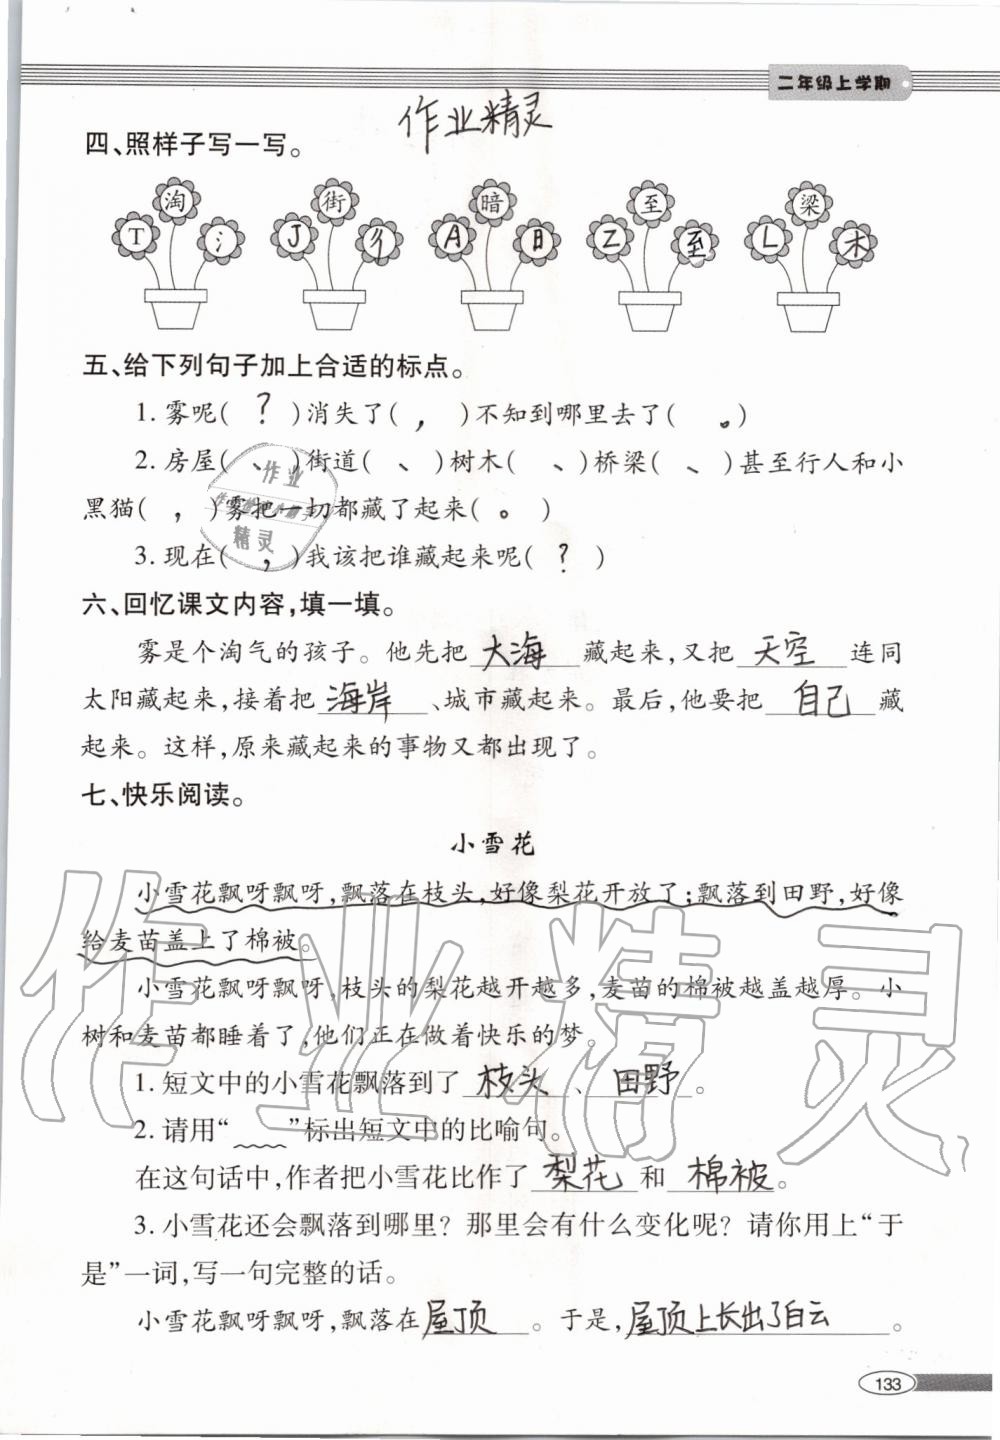 二年级上学期
作业精灵
四、照样子写一写。
淘 街 暗 至 梁
T 氵 J 彳 A 日 Z 至 L 木
五、给下列句子加上合适的标点。
1. 雾呢( ? )消失了( , )不知到哪里去了( 。)
2. 房屋( 、 )街道( 、 )树木( 、 )桥梁( 、 )甚至行人和小
黑猫( , )雾把一切都藏了起来( 。 )
3. 现在( , )我该把谁藏起来呢( ? )
作业
精灵
六、回忆课文内容,填一填。
雾是个淘气的孩子。他先把 大海 藏起来,又把 天空 连同
太阳藏起来,接着把 海岸 、城市藏起来。最后,他要把 自己 藏
起来。这样,原来藏起来的事物又都出现了。
七、快乐阅读。
小雪花
小雪花飘呀飘呀,飘落在枝头,好像梨花开放了;飘落到田野,好像
给麦苗盖上了棉被。
小雪花飘呀飘呀,枝头的梨花越开越多,麦苗的棉被越盖越厚。小
树和麦苗都睡着了,他们正在做着快乐的梦。
1. 短文中的小雪花飘落到了 枝头 、 田野 。
2. 请用“ ”标出短文中的比喻句。
在这句话中,作者把小雪花比作了 梨花 和 棉被 。
3. 小雪花还会飘落到哪里?那里会有什么变化呢?请你用上“于
是”一词,写一句完整的话。
小雪花飘呀飘呀,飘落在 屋顶 。于是, 屋顶上长出了白云 。
作业精灵
133